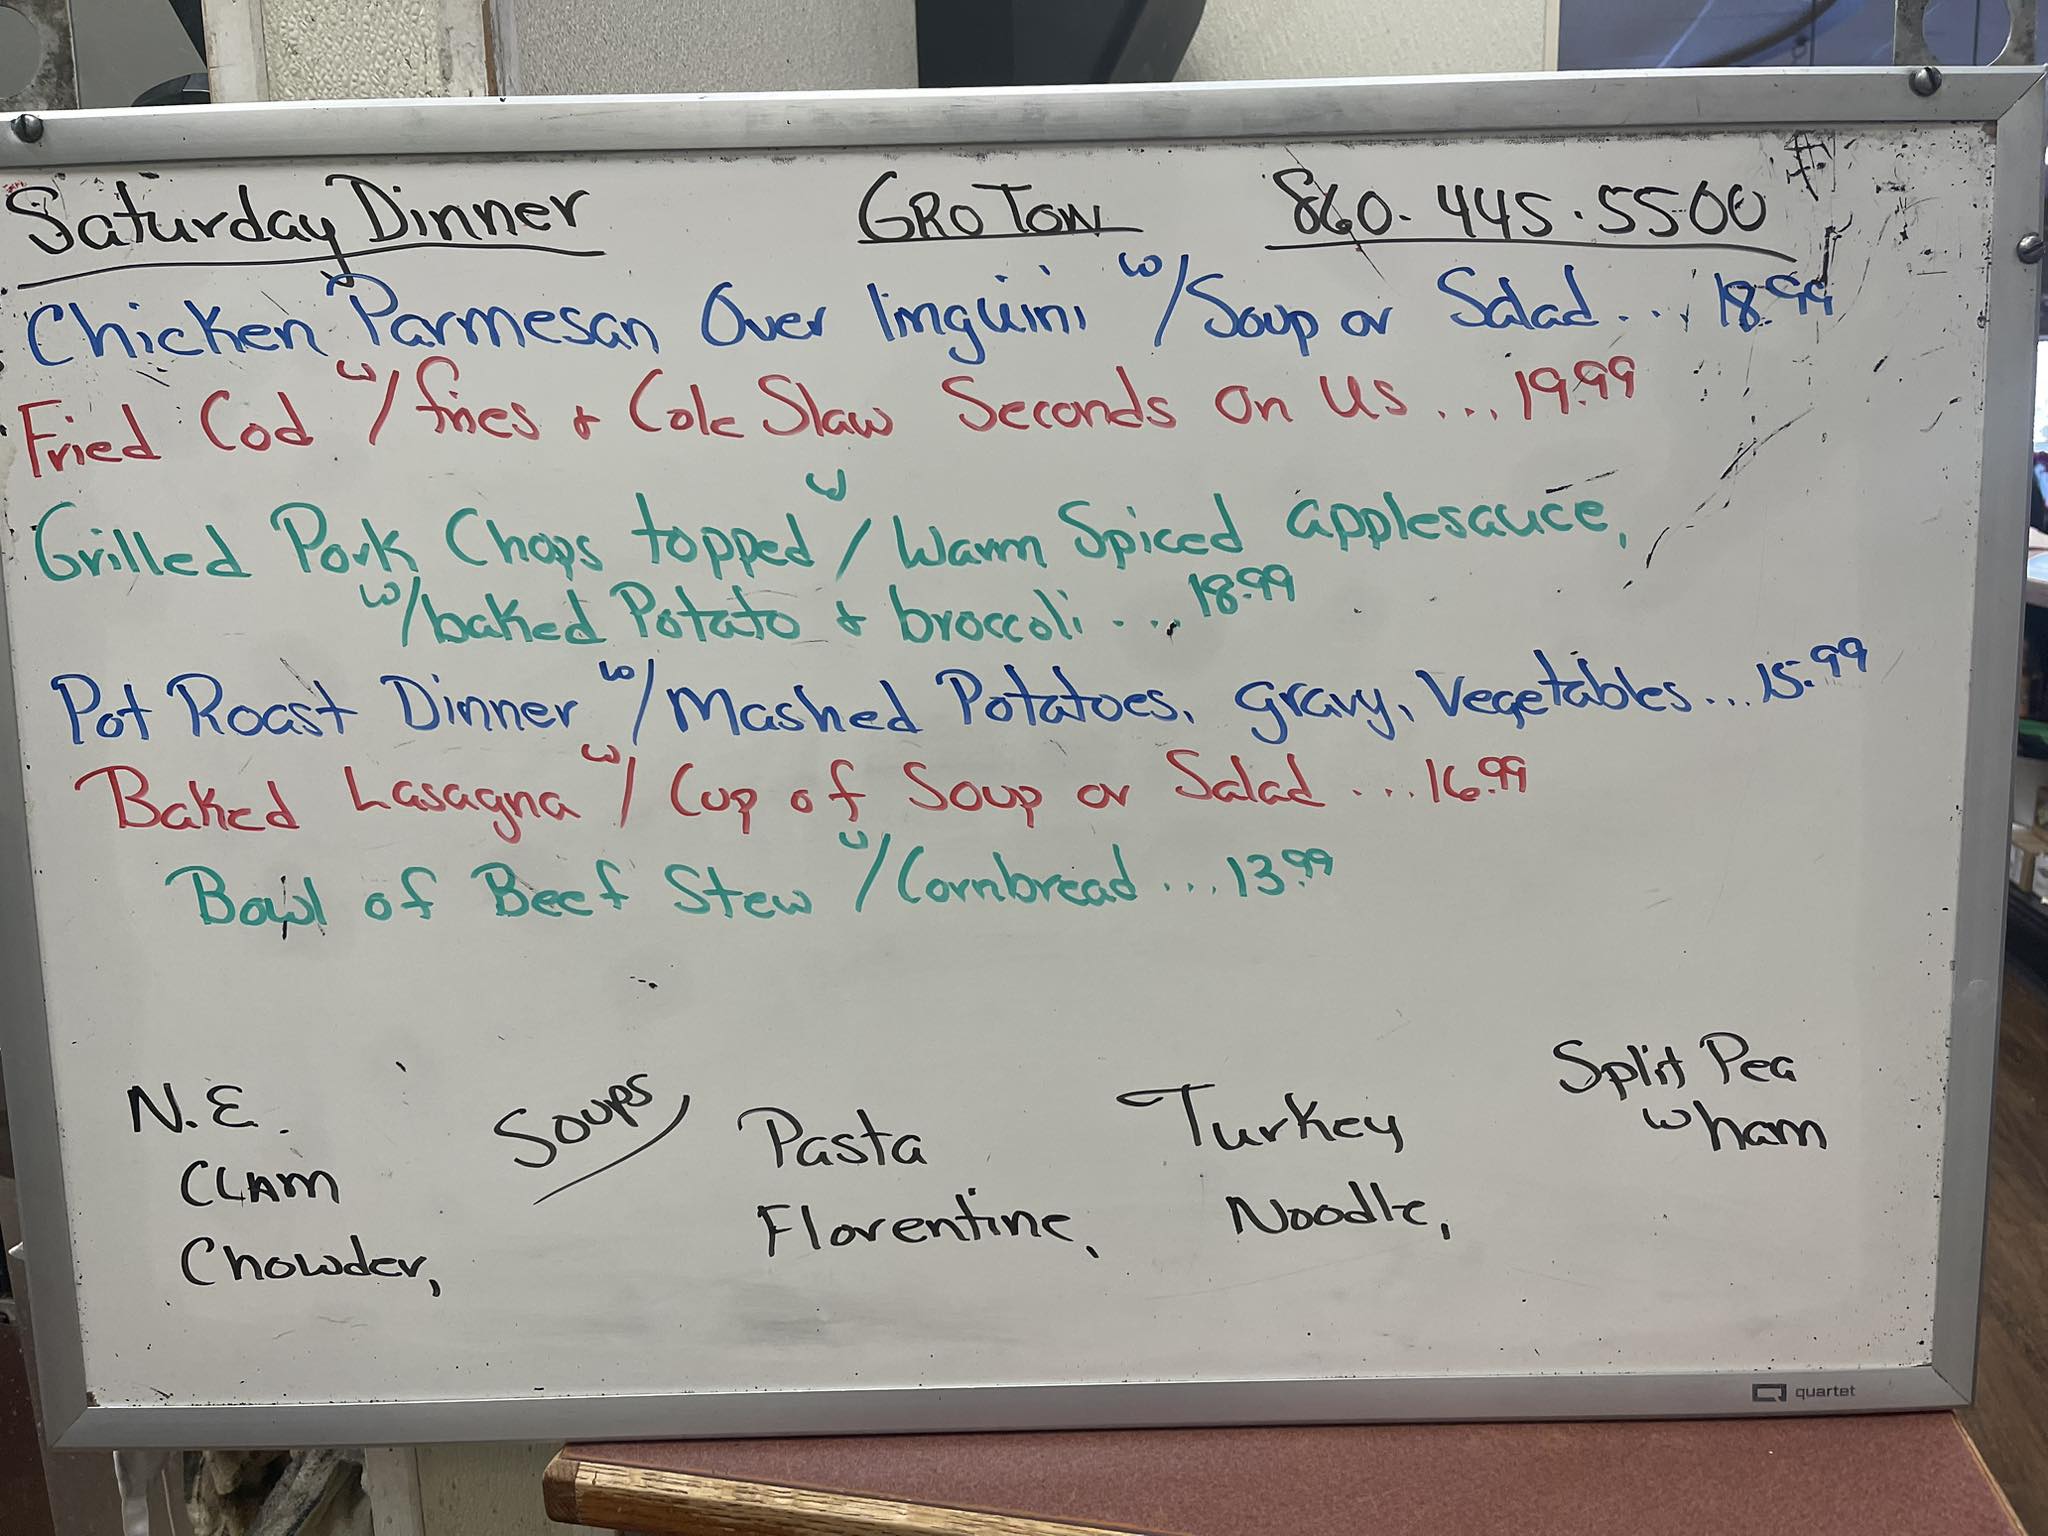 Saturday Dinner GROTON 860.445.5500
Chicken Parmesan Over linguini w/Soup or Salad... 18.99
Fried Cod w/fries & Cole Slaw Seconds On Us ... 19.99
Grilled Pork Chops topped w/Warm Spiced applesauce,
w/baked Potato & broccoli ... 18.99
Pot Roast Dinner w/Mashed Potatoes, gravy, Vegetables...15.99
Baked Lasagna w/Cup of Soup or Salad ...16.99
Bowl of Beef Stew w/Cornbread ...13.99
Soups
N.E.
CLAM
Chowder,
Pasta
Florentine,
Turkey
Noodle,
Split Pea
w ham
quartet